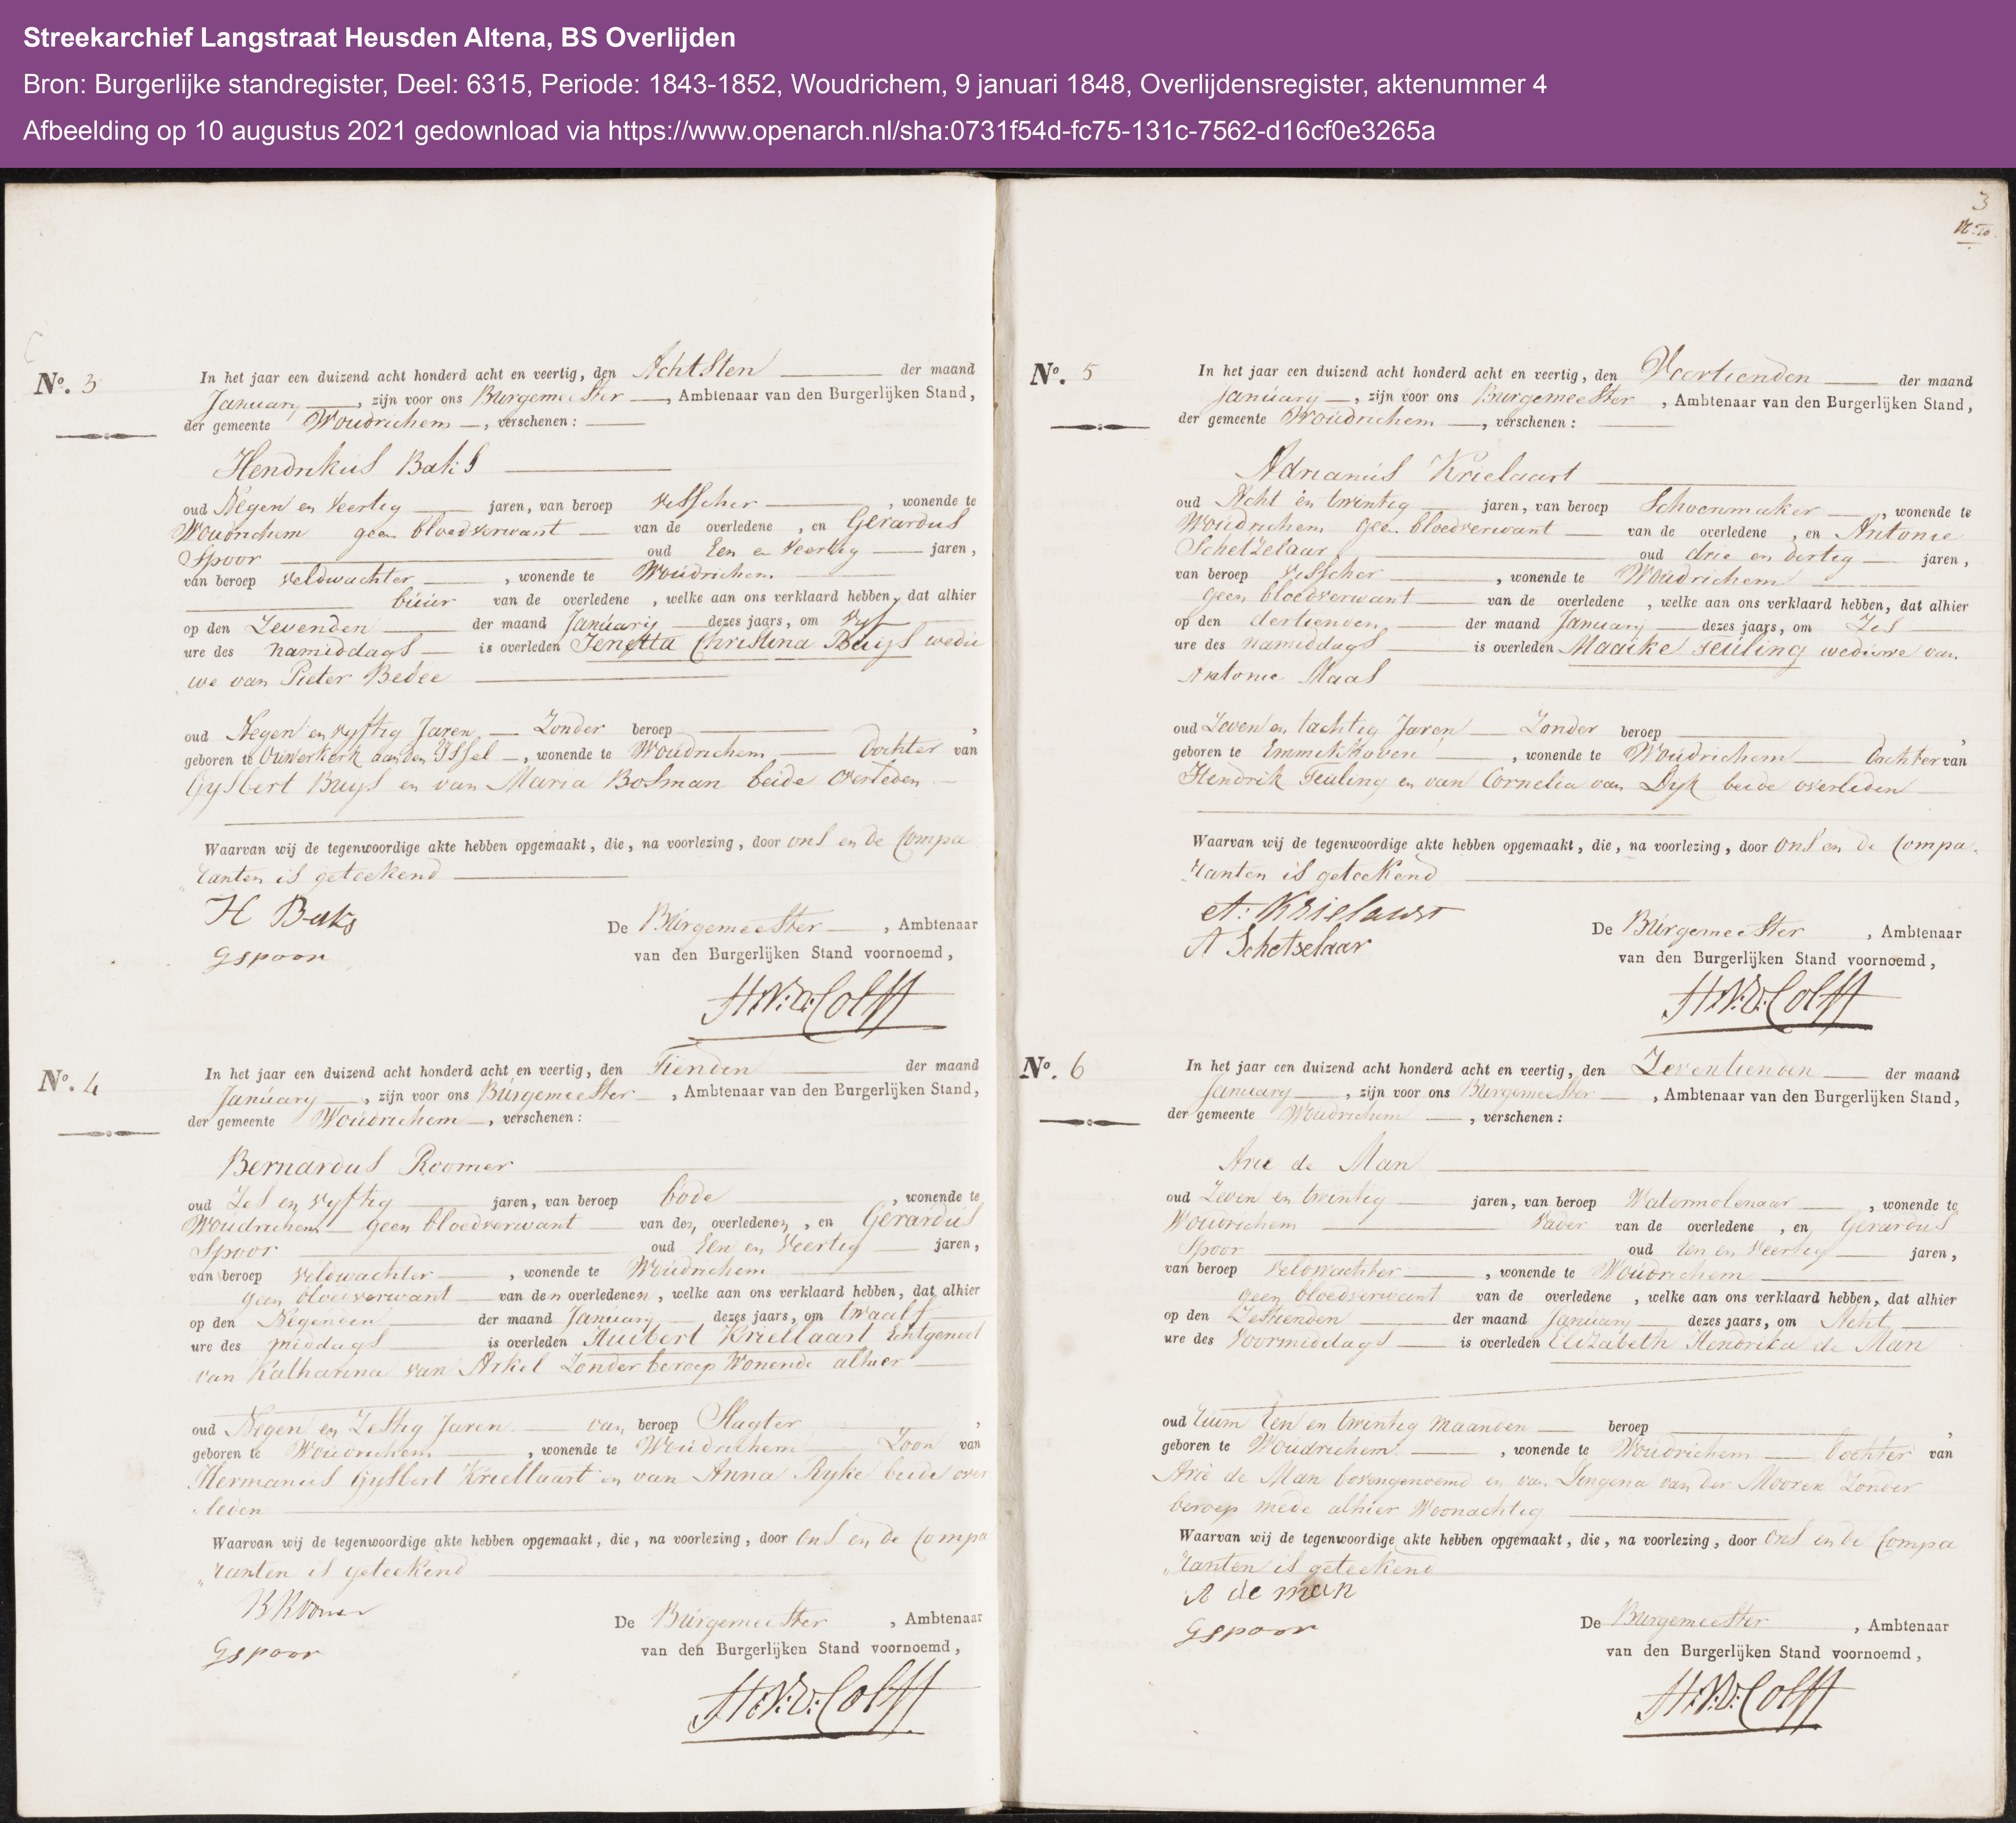 Streekarchief Langstraat Heusden Altena, BS Overlijden
Bron: Burgerlijke standregister, Deel: 6315, Periode: 1843-1852, Woudrichem, 9 januari 1848, Overlijdensregister, aktenummer 4
Afbeelding op 10 augustus 2021 gedownload via https://www.openarch.nl/sha:0731f54d-fc75-131c-7562-d16cf0e3265a
No. 3
In het jaar een duizend acht honderd acht en veertig, den Achtsten der maand
January, zijn voor ons Burgemeester, Ambtenaar van den Burgerlijken Stand,
der gemeente Woudrichem, verschenen:
Hendrikus Baks
oud Negen en veertig jaren, van beroep visscher, wonende te
Woudrichem geen bloedverwant van de overledene, en Gerardus
Spoor oud Een en veertig jaren,
van beroep veldwachter, wonende te Woudrichem
buur van de overledene, welke aan ons verklaard hebben, dat alhier
op den Zevenden der maand January dezes jaars, om vyf
ure des namiddags is overleden Jenetta Christina Buys wedu
we van Pieter Bedee
oud Negen en vyftig Jaren Zonder beroep,
geboren te Ouwerkerk aan den Yssel, wonende te Woudrichem Dochter van
Gysbert Buys en van Maria Bosman beide overleden
Waarvan wij de tegenwoordige akte hebben opgemaakt, die, na voorlezing, door ons en de Compa
ranten is geteekend
H Baks
G spoor
De Burgemeester, Ambtenaar
van den Burgerlijken Stand voornoemd,
No. 4
In het jaar een duizend acht honderd acht en veertig, den Tienden der maand
January, zijn voor ons Burgemeester, Ambtenaar van den Burgerlijken Stand,
der gemeente Woudrichem, verschenen:
Bernardus Roomer
oud Zes en vyftig jaren, van beroep bode, wonende te
Woudrichem geen bloedverwant van den overledenen, en Gerardus
Spoor oud Een en veertig jaren,
van beroep veldwachter, wonende te Woudrichem
geen bloedverwant van den overledenen, welke aan ons verklaard hebben, dat alhier
op den Negenden der maand January dezes jaars, om twaalf
ure des middags is overleden Huibert Kriellaart Echtgenoot
van Katharina van Arkel Zonder beroep Wonende alhier
oud Negen en Zestig Jaren van beroep Slagter,
geboren te Woudrichem, wonende te Woudrichem Zoon van
Hermanus Gysbert Kriellaart en van Anna Ryke beide over
leden
Waarvan wij de tegenwoordige akte hebben opgemaakt, die, na voorlezing, door ons en de Compa
ranten is geteekend
B Roomer
G spoor
De Burgemeester, Ambtenaar
van den Burgerlijken Stand voornoemd,
3
No. 5
In het jaar een duizend acht honderd acht en veertig, den Veertienden der maand
January, zijn voor ons Burgemeester, Ambtenaar van den Burgerlijken Stand,
der gemeente Woudrichem, verschenen:
Adrianus Krielaart
oud Acht en twintig jaren, van beroep Schoenmaker, wonende te
Woudrichem geen bloedverwant van de overledene, en Antonie
Schetzelaar oud drie en dertig jaren,
van beroep visscher, wonende te Woudrichem
geen bloedverwant van de overledene, welke aan ons verklaard hebben, dat alhier
op den dertienden der maand January dezes jaars, om Zes
ure des namiddags is overleden Maaike Teuling weduwe van
Antonie Maas
oud Zeven en tachtig Jaren Zonder beroep,
geboren te Emmikhoven, wonende te Woudrichem Dochter van
Hendrik Teuling en van Cornelia van Dyk beide overleden
Waarvan wij de tegenwoordige akte hebben opgemaakt, die, na voorlezing, door ons en de Compa
ranten is geteekend
A: Krielaart
A Schetselaar
De Burgemeester, Ambtenaar
van den Burgerlijken Stand voornoemd,
No. 6
In het jaar een duizend acht honderd acht en veertig, den Zeventienden der maand
January, zijn voor ons Burgemeester, Ambtenaar van den Burgerlijken Stand,
der gemeente Woudrichem, verschenen:
Arie de Man
oud Zeven en twintig jaren, van beroep Watermolenaar, wonende te
Woudrichem vader van de overledene, en Gerardus
Spoor oud Een en veertig jaren,
van beroep veldwachter, wonende te Woudrichem
geen bloedverwant van de overledene, welke aan ons verklaard hebben, dat alhier
op den Zestienden der maand January dezes jaars, om Acht
ure des voormiddags is overleden Elizabeth Hendrika de Man
oud ruim Een en twintig maanden beroep,
geboren te Woudrichem, wonende te Woudrichem Dochter van
Arie de Man bovengenoemd en van Dingena van der Mooren Zonder
beroep mede alhier Woonachtig
Waarvan wij de tegenwoordige akte hebben opgemaakt, die, na voorlezing, door ons en de Compa
ranten is geteekend
A de man
G spoor
De Burgemeester, Ambtenaar
van den Burgerlijken Stand voornoemd,